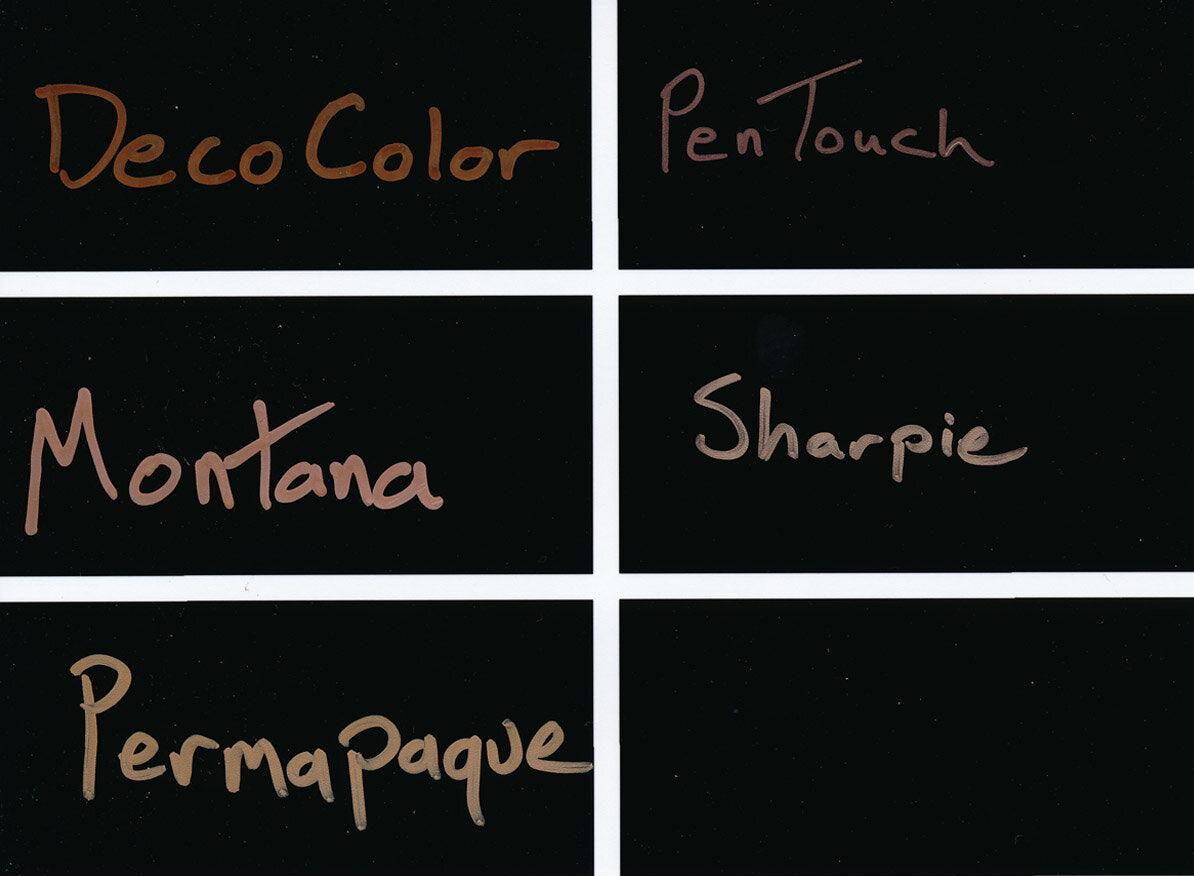 DecoColor
PenTouch
Montana
Sharpie
Permapaque